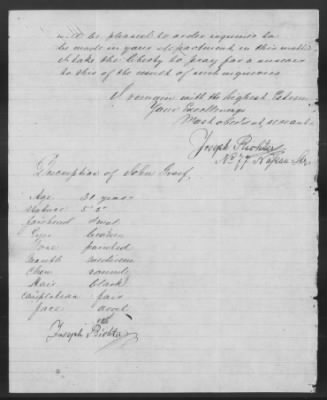 will be pleased to order inquiries to
be made in your Department in this matter
I take the liberty to pray for a answer
to this of the result of such inquiries
I remain with the highest Esteem
Your Excellencys
Most obedient servant
Joseph Richter
No 77 Nassau Str.
Description of John Graf.
Age 30 years
stature 5' 5"
forehead oval
Eyes brown
Nose pointed
mouth medium
Chin round
Hair black
complexion fair
face oval
Joseph Richter